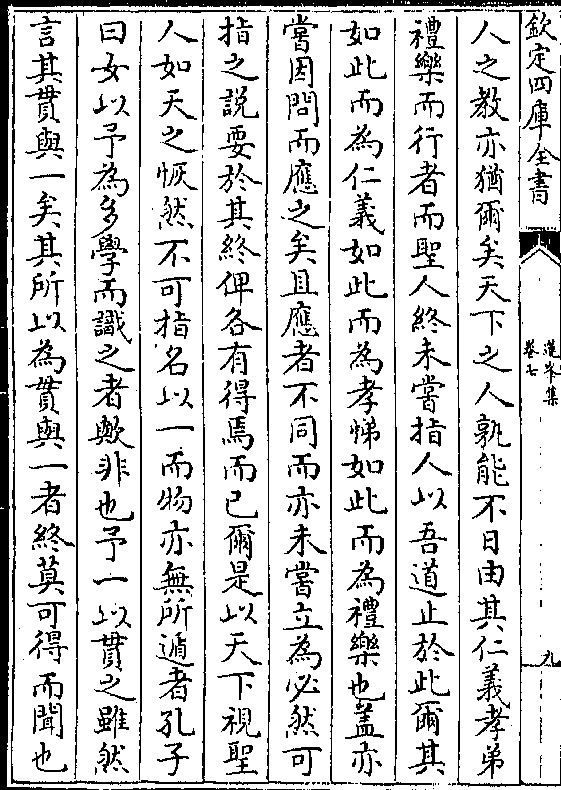 欽定四庫全書
卷七
九
人之教亦猶爾矣天下之人孰能不日由其仁義孝弟
禮樂而行者而聖人終未嘗指人以吾道止於此爾其
如此而為仁義如此而為孝悌如此而為禮樂也盖亦
嘗因問而應之矣且應者不同而亦未嘗立為必然可
指之說要於其終俾各有得焉而已爾是以天下視聖
人如天之恢然不可指名以一而物亦無所遁者孔子
曰女以予為多學而識之者歟非也予一以貫之雖然
言其貫與一矣其所以為貫與一者終莫可得而聞也